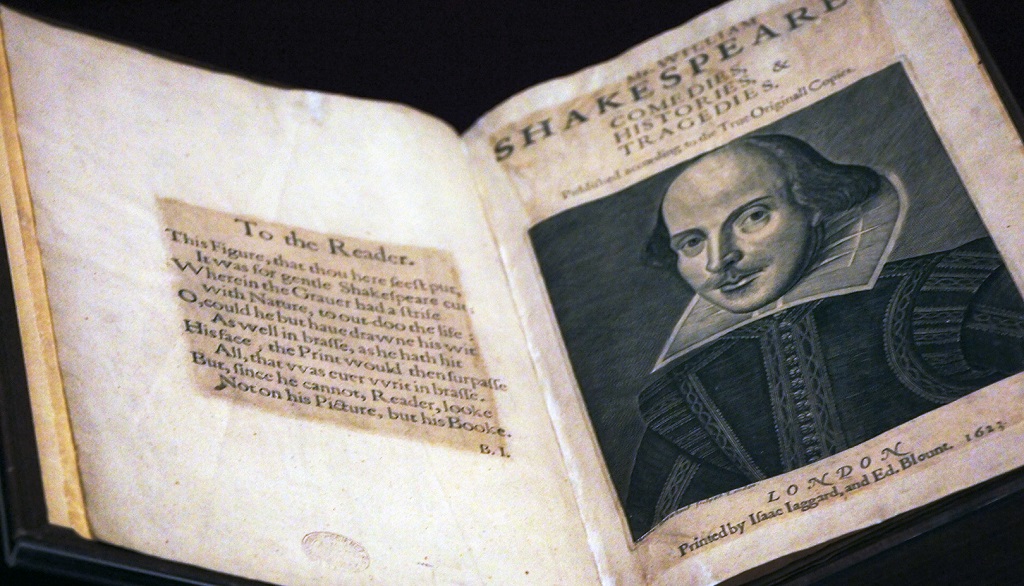 To the Reader.
This Figure, that thou here ſeeſt put,
It was for gentle Shakeſpeare cut;
Wherein the Grauer had a ſtrife
with Nature, to out-doo the life :
O, could he but haue drawne his wit
As well in braſſe, as he hath hit
His face ; the Print would then ſurpaſſe
All, that vvas euer vvrit in braſſe.
But, ſince he cannot, Reader, looke
Not on his Picture, but his Booke.
B. I.
Mr. WILLIAM
SHAKESPEARE
COMEDIES,
HISTORIES, &
TRAGEDIES.
Publiſhed according to the True Originall Copies.
LONDON
Printed by Iſaac Iaggard, and Ed. Blount. 1623.